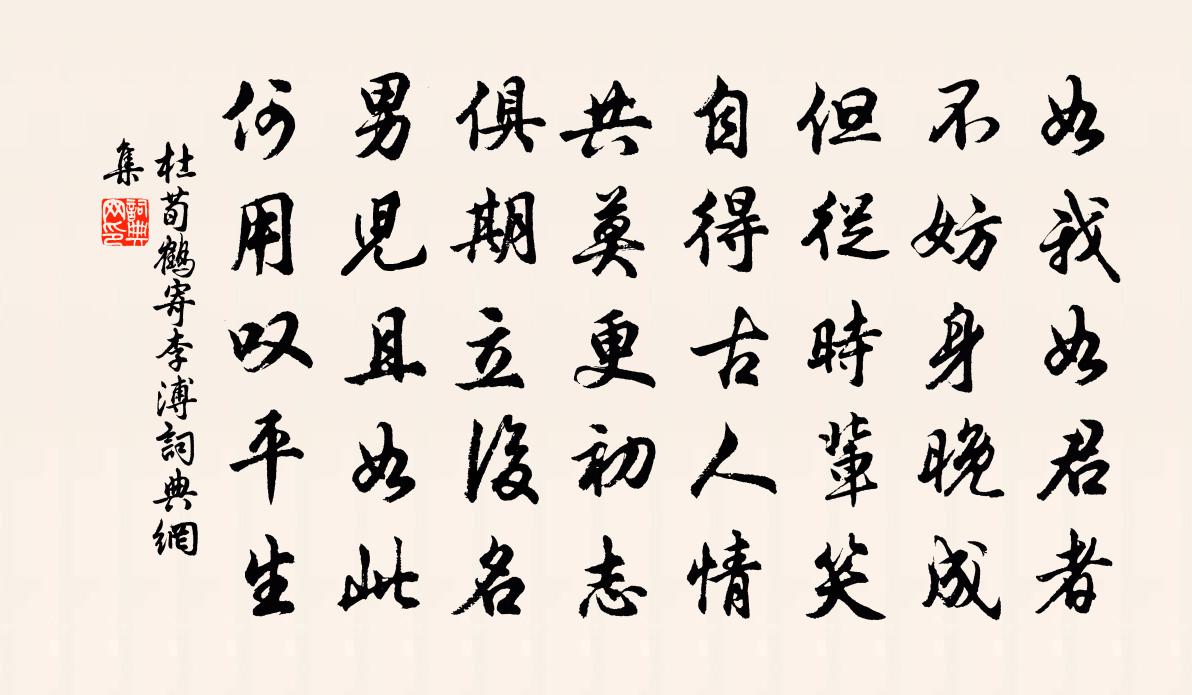 如我如君者
不妨身晚成
但從時輩笑
自得古人情
共莫更初志
俱期立後名
男児且如此
何用叹平生
杜荀鶴寄李溥詞典網
集
詞典
网印